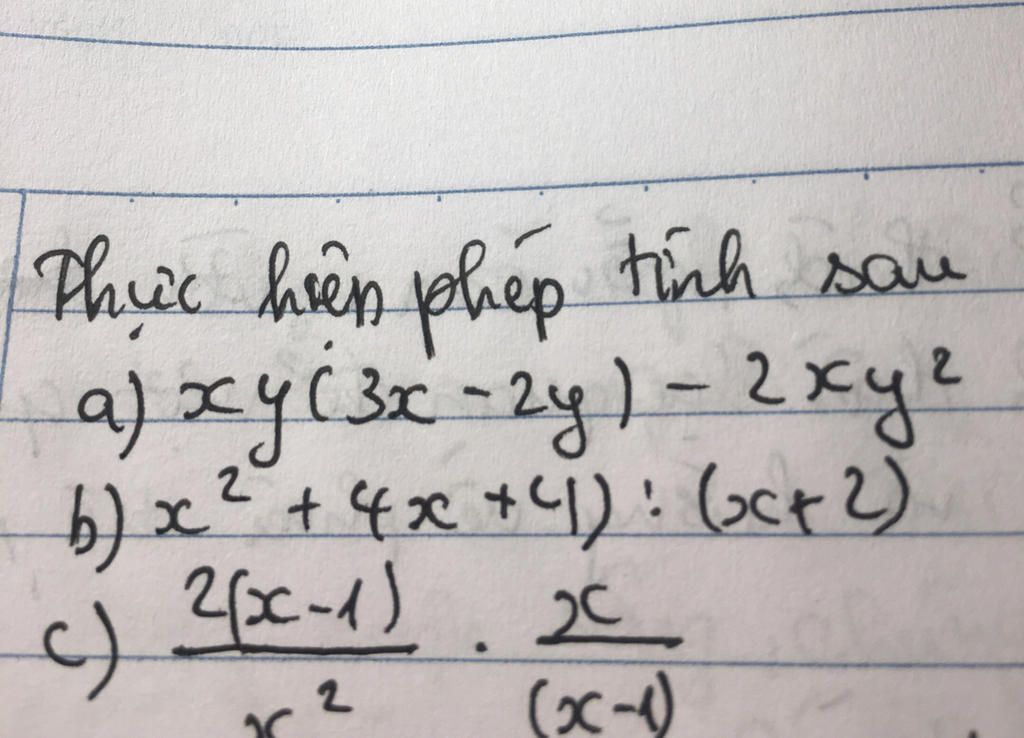 Thực hiện phép tính sau
a) xy(3x - 2y) - 2xy²
b) x² + 4x + 4) : (x + 2)
c) 2(x-1)/x² . x/(x-1)